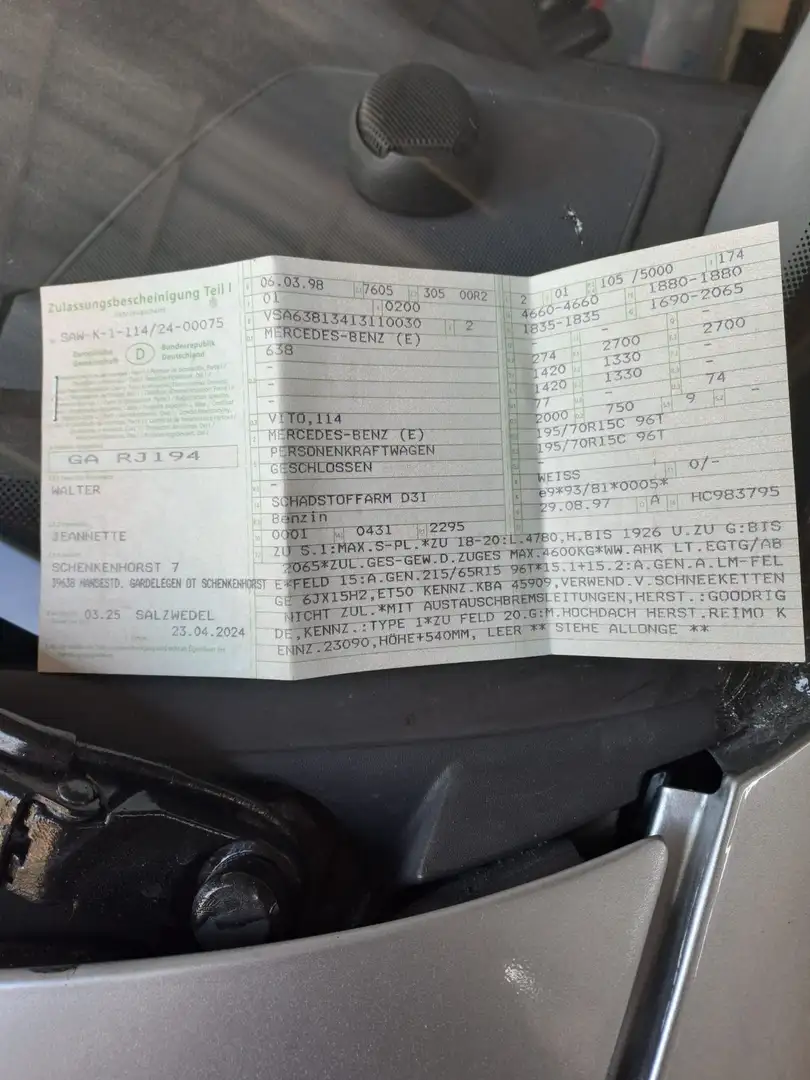 Zulassungsbescheinigung Teil I
SAW-K-1-114/24-00075
Europäische Gemeinschaft
D
Bundesrepublik Deutschland
GA RJ194
WALTER
JEANNETTE
SCHENKENHORST 7
39638 HANSESTD. GARDELEGEN OT SCHENKENHORST
03.25 SALZWEDEL
23.04.2024
06.03.98 7605 305 00R2
01 0200
VSA63813413110030 2
MERCEDES-BENZ (E)
638
-
-
-
VITO,114
MERCEDES-BENZ (E)
PERSONENKRAFTWAGEN
GESCHLOSSEN
-
SCHADSTOFFARM D3I
Benzin
0001 0431 2295
2 01 105 /5000 174
4660-4660 1880-1880
1835-1835 1690-2065
- -
274 2700 2700
1420 1330 -
1420 1330 -
77 - 74
2000 750 9 -
195/70R15C 96T
195/70R15C 96T
-
WEISS 0/-
e9*93/81*0005*
29.08.97 A HC983795
ZU S.1:MAX.S-PL.*ZU 18-20:L.4780,H.BIS 1926 U.ZU G:BIS
2065*ZUL.GES-GEW.D.ZUGES MAX.4600KG*WW.AHK LT.EGTG/AB
E*FELD 15:A.GEN.215/65R15 96T*15.1+15.2:A.GEN.A.LM-FEL
GE 6JX15H2,ET50 KENNZ.KBA 45909,VERWEND.V.SCHNEEKETTEN
NICHT ZUL.*MIT AUSTAUSCHBREMSLEITUNGEN,HERST.:GOODRIG
DE,KENNZ.:TYPE 1*ZU FELD 20.G:M.HOCHDACH HERST.REIMO K
ENNZ.23090,HÖHE+540MM, LEER ** SIEHE ALLONGE **